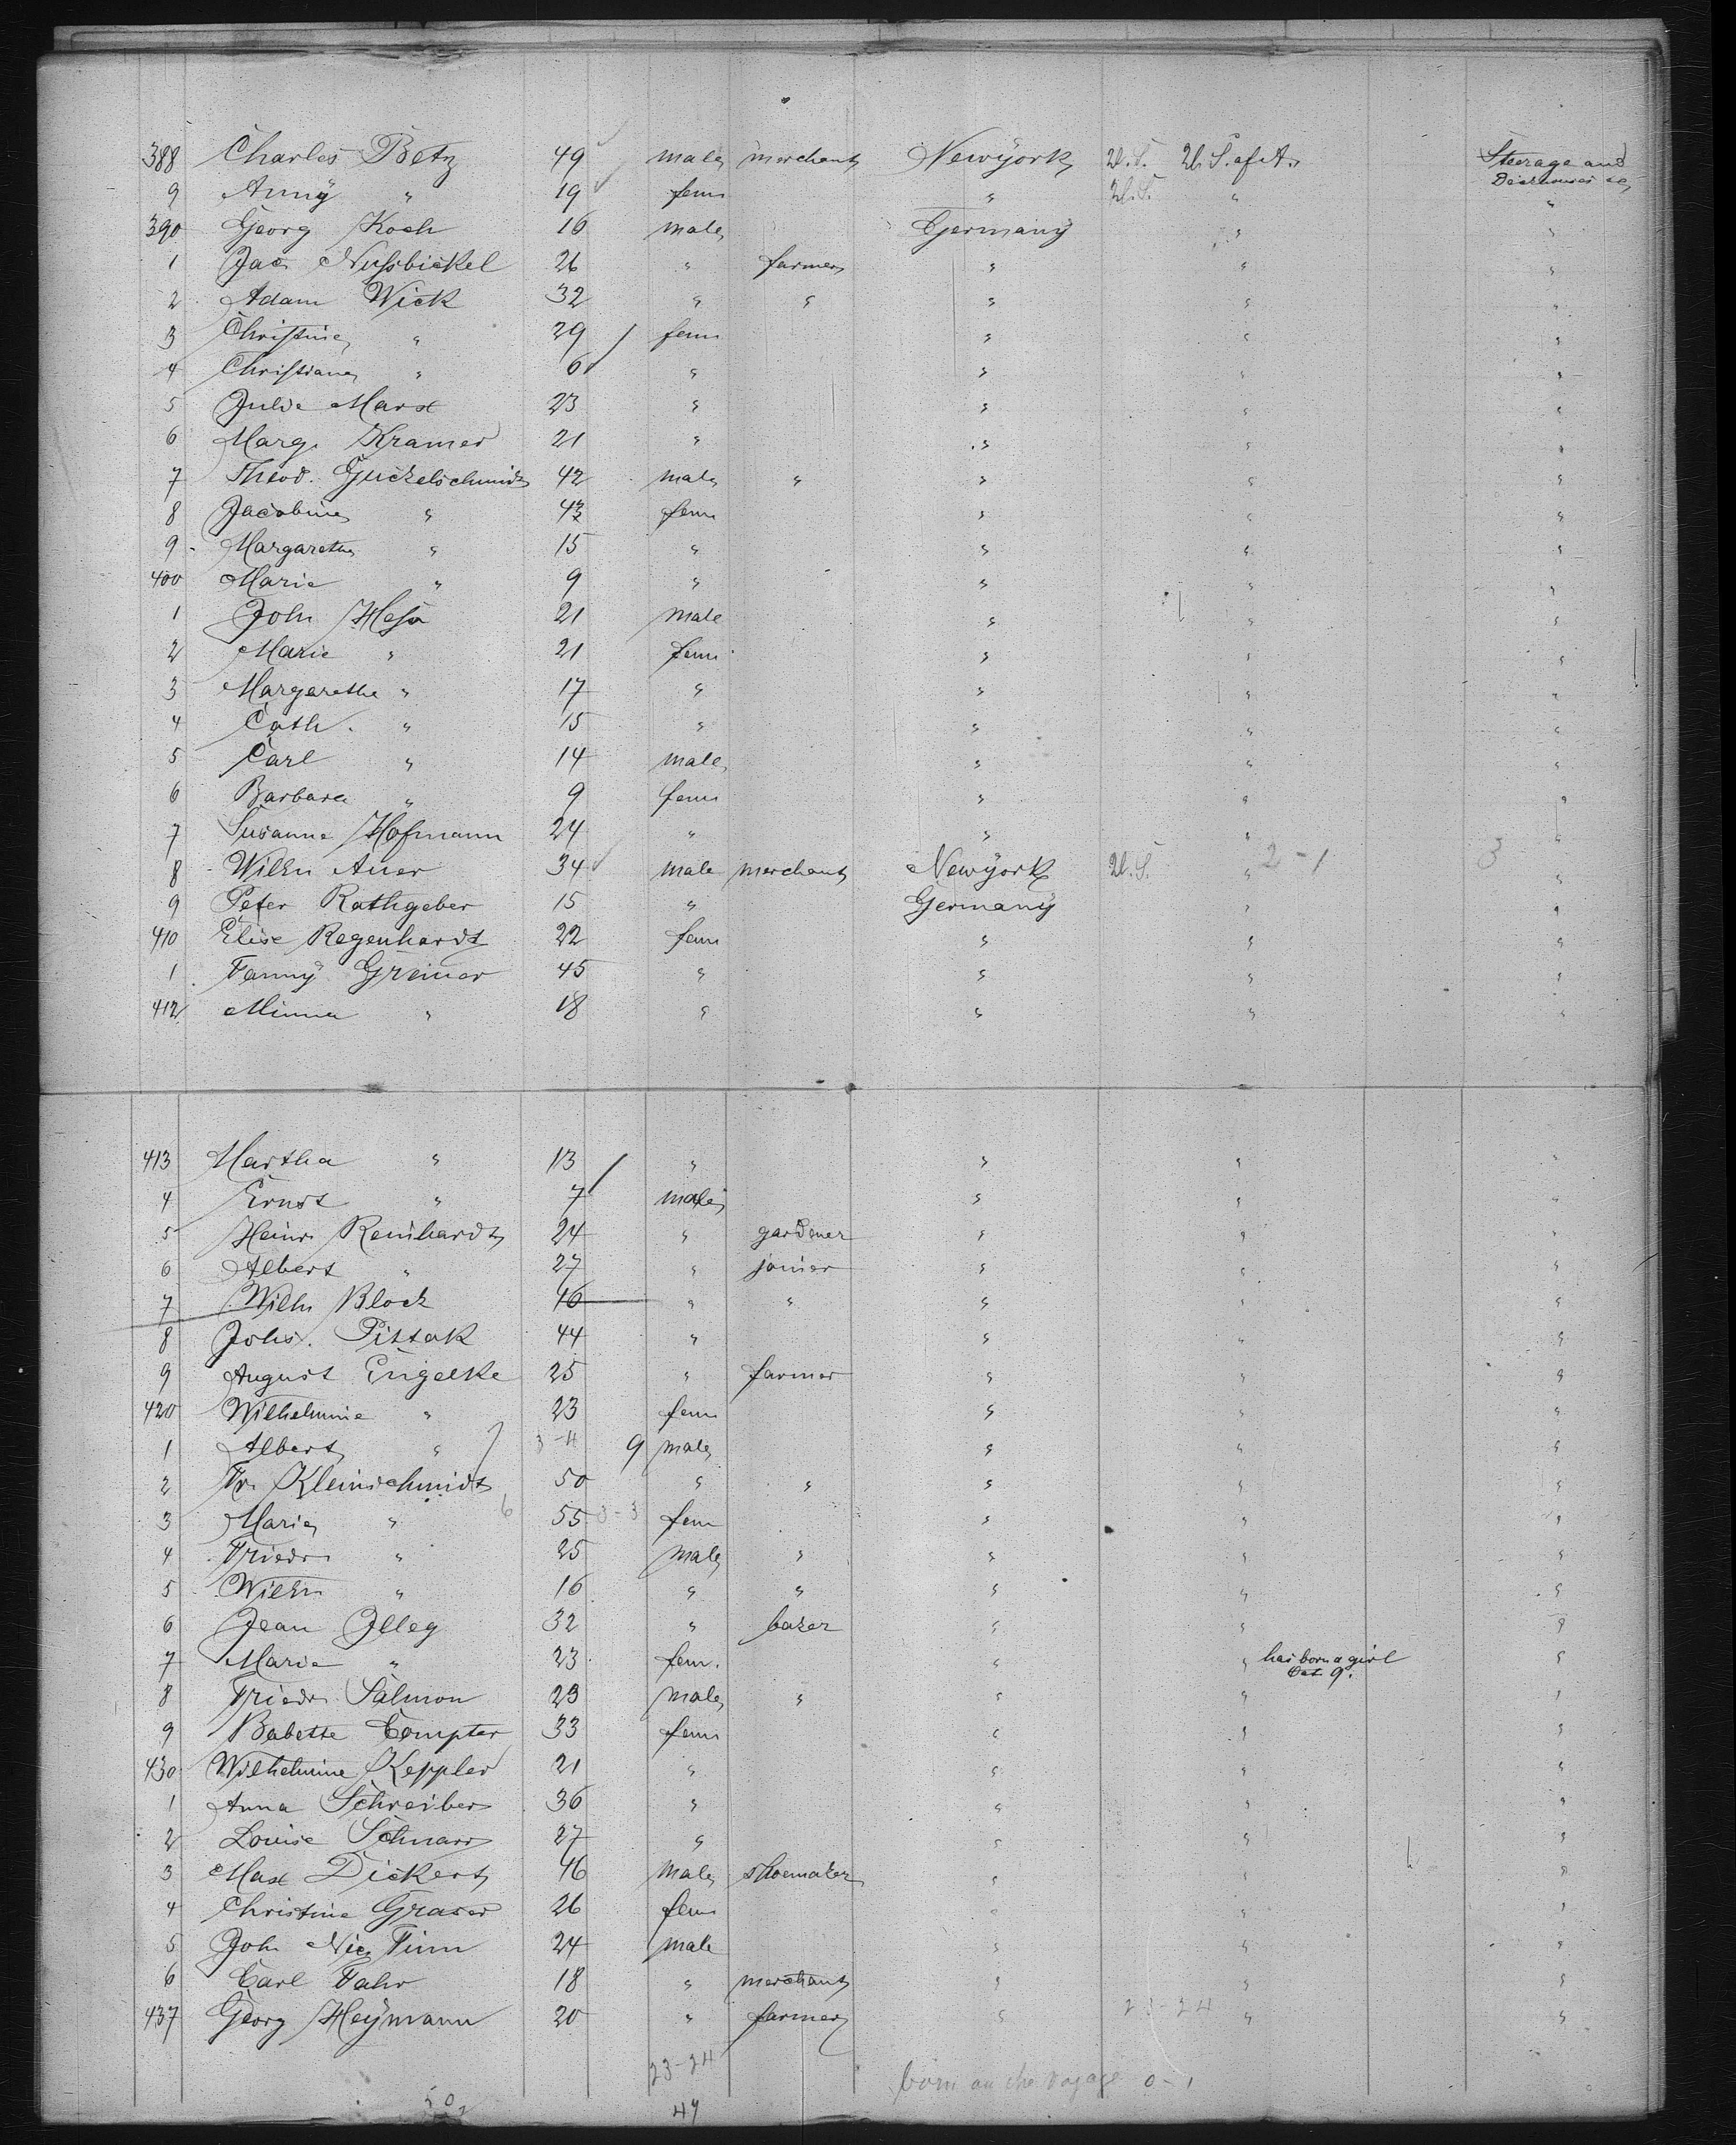 388 Charles Betz 49 male merchant Newyork U.S. U.S. of A. Steerage and
9 Anny " 19 fem " U.S. " "
390 Georg Koch 16 male Germany " "
1 Jac Nussbickel 26 " farmer " " "
2 Adam Wick 32 " " " " "
3 Christine " 29 fem " " "
4 Christiane " 6 " " " "
5 Julie Marx 23 " " " "
6 Marg. Kramer 21 " " " "
7 Theod. Guckelschmidt 42 male " " " "
8 Jacobine " 43 fem " " "
9 Margarethe " 15 " " " "
400 Marie " 9 " " " "
1 John Hess 21 male " " "
2 Marie " 21 fem " " "
3 Margarethe " 17 " " " "
4 Cath. " 15 " " " "
5 Carl " 14 male " " "
6 Barbara " 9 fem " " "
7 Susanne Hofmann 24 " " " "
8 Wilhm Auer 34 male merchant Newyork U.S. " 2-1 3 "
9 Peter Rathgeber 15 " Germany " "
410 Elise Regenhardt 22 fem " " "
1 Fanny Greiner 45 " " " "
412 Minna " 18 " " " "
413 Martha " 13 " " " "
4 Ernst " 7 male " " "
5 Heinr Reinhardt 24 " gardener " " "
6 Albert " 27 " joiner " " "
7 Wilh Block 46 " " " " "
8 Johs. Pittak 44 " " " "
9 August Engelke 25 " farmer " " "
420 Wilhelmine " 23 fem " " "
1 Albert " 3-4 9 male " " "
2 Fr. Kleinschmidt 50 " " " " "
3 Marie " 6 55 3-3 fem " " "
4 Friedr " 25 male " " " "
5 Wilhm " 16 " " " " "
6 Jean Illeg 32 " baker " " "
7 Marie " 23 fem. " " has born a girl "
Oct. 9.
8 Friedr Salmon 23 male " " " "
9 Babette Compter 33 fem " " "
430 Wilhelmine Keppler 21 " " " "
1 Anna Schreiber 36 " " " "
2 Louise Schnarr 27 " " " "
3 Max Dickert 46 male shoemaker " " "
4 Christine Graser 26 fem " " "
5 Joh Nic Timm 24 male " " "
6 Carl Fahr 18 " merchant " " "
437 Georg Heymann 20 " farmer " 23-24 " "
23-24
born on the voyage 0-1
49